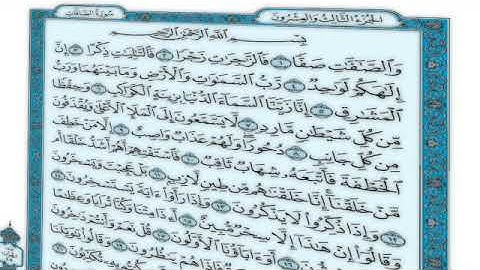 سُورَةُ الصَّافَّاتِ
الجُزْءُ الثَّالِثُ وَالعِشْرُونَ
بِسْمِ اللَّهِ الرَّحْمَٰنِ الرَّحِيمِ
وَالصَّٰٓفَّٰتِ صَفًّا ١ فَالزَّٰجِرَٰتِ زَجْرًا ٢ فَالتَّٰلِيَٰتِ ذِكْرًا ٣ إِنَّ
إِلَٰهَكُمْ لَوَٰحِدٌ ٤ رَّبُّ السَّمَٰوَٰتِ وَالْأَرْضِ وَمَا بَيْنَهُمَا وَرَبُّ
الْمَشَٰرِقِ ٥ إِنَّا زَيَّنَّا السَّمَآءَ الدُّنْيَا بِزِينَةٍ الْكَوَاكِبِ ٦ وَحِفْظًا
مِّن كُلِّ شَيْطَٰنٍ مَّارِدٍ ٧ لَّا يَسَّمَّعُونَ إِلَى الْمَلَإِ الْأَعْلَىٰ وَيُقْذَفُونَ
مِن كُلِّ جَانِبٍ ٨ دُحُورًا وَلَهُمْ عَذَابٌ وَاصِبٌ ٩ إِلَّا مَنْ خَطِفَ
الْخَطْفَةَ فَأَتْبَعَهُ شِهَابٌ ثَاقِبٌ ١٠ فَاسْتَفْتِهِمْ أَهُمْ أَشَدُّ خَلْقًا أَم
مَّنْ خَلَقْنَآ إِنَّا خَلَقْنَٰهُم مِّن طِينٍ لَّازِبٍ ١١ بَلْ عَجِبْتَ وَيَسْخَرُونَ
١٢ وَإِذَا ذُكِّرُوا لَا يَذْكُرُونَ ١٣ وَإِذَا رَأَوْا ءَايَةً يَسْتَسْخِرُونَ ١٤
وَقَالُوٓا إِنْ هَٰذَآ إِلَّا سِحْرٌ مُّبِينٌ ١٥ أَءِذَا مِتْنَا وَكُنَّا تُرَابًا وَعِظَٰمًا
أَءِنَّا لَمَبْعُوثُونَ ١٦ أَوَءَابَآؤُنَا الْأَوَّلُونَ ١٧ قُلْ نَعَمْ وَأَنتُمْ دَٰخِرُونَ
فَإِذَا هُمْ يَنظُرُونَ ١٩ وَقَالُوا يَٰوَيْلَنَا